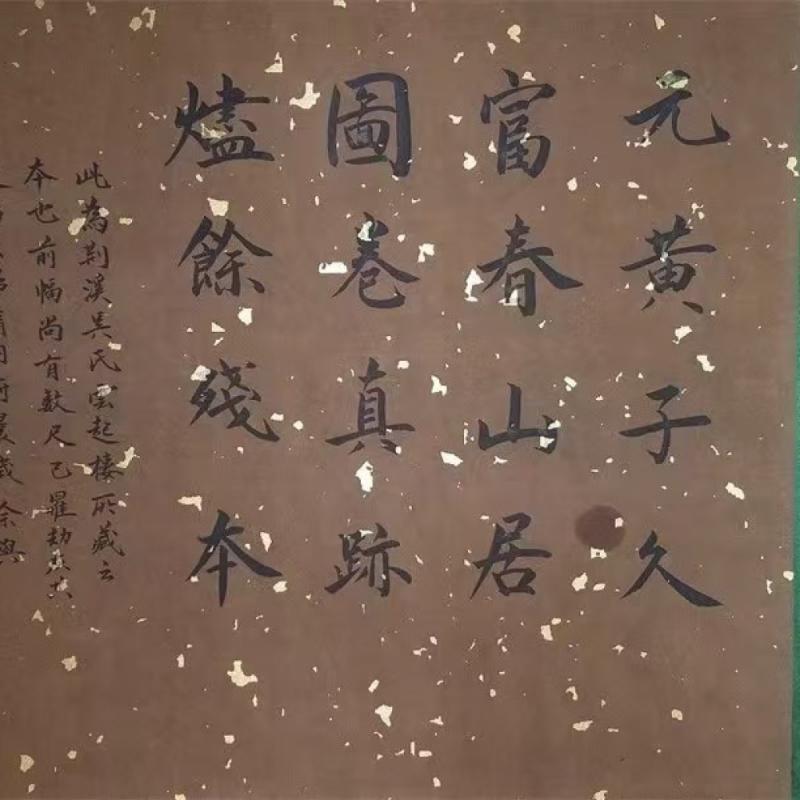 元黃子久
富春山居
圖卷真跡
燼餘殘本
此為荆溪吳氏雲起樓所藏之
本也前幅尚有數尺已罹劫火其